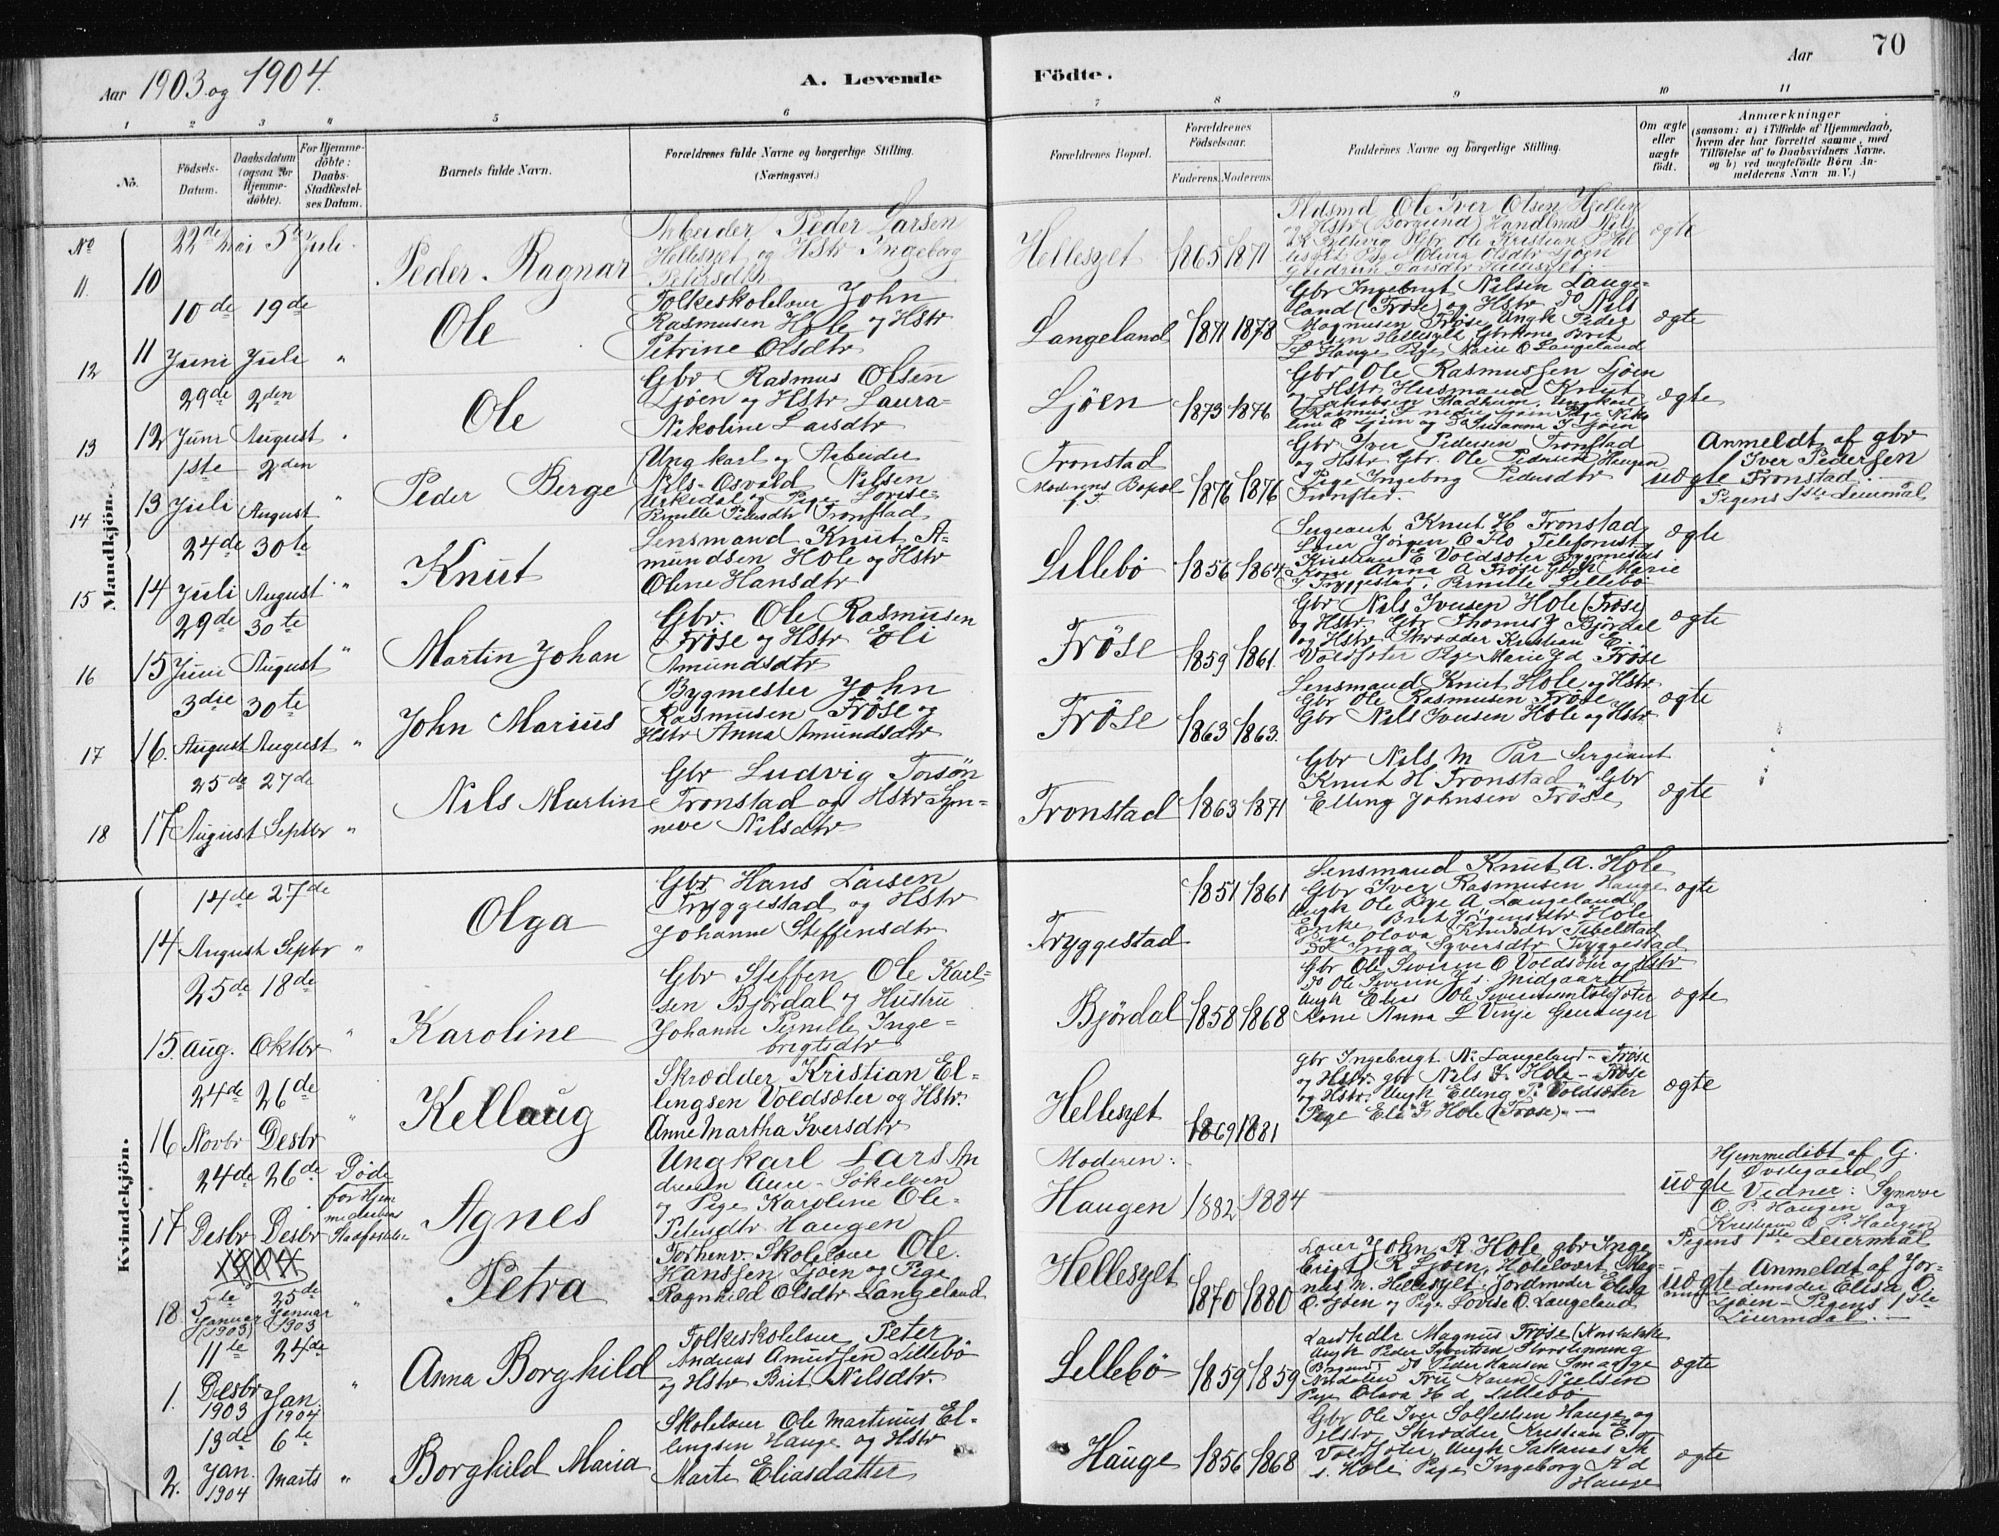 Aar 1903 og 1904.
A. Levende Födte.
Aar 70
1 2 3 4 5 6 7 8 9 10 11
No.
Födsels-Datum.
Daabsdatum (ogsaa for Hjemmedöbte).
For Hjemmedöbte: Daabs-Stadfæstelses Datum.
Barnets fulde Navn.
Forældrenes fulde Navne og borgerlige Stilling. (Næringsvei.)
Forældrenes Bopæl.
Forældrenes Födselsaar.
Faderens. Moderens.
Faddernes Navne og borgerlige Stilling.
Om ægte eller uægte födt.
Anmærkninger
(saasom: a) i Tilfælde af Hjemmedaab, hvem der har forrettet samme, med Tilföielse af to Daabsvidners Navne, og b) ved uægtefödte Börn Anmelderens Navn m. V.)
Mandkjön.
No 11. 10 22de Mai 5te Juli
Peder Ragnar
Arbeider Peder Larsen
Hellesylt og Hstr Ingeborg
Petersdtr
Hellesylt 1865 1871
Pladsmd Ole Iver Olsen
og Hstr (Borgund) Handlmd Nils
Gbr Ole Kristian
Pige Olivia Olsdtr Ljöen
Gudrun Larsdtr Hellesylt
ægte
12 11 10de Juni 19de Juli "
Ole
Folkeskolelærer John
Rasmusen Hole og Hstr
Petrine Olsdtr
Langeland 1871 1878
Gbr Ingebrigt Nilsen Lange-
land (Fröse) og Hstr Do Nils
Magnusen Fröse, Ungk Peder
Larsen Hellesylt Gbrkone Brit
L Hauge Pige Marie O Langeland
ægte
13 12 29de Juni 2den August "
Ole
Gbr Rasmus Olsen
Ljöen og Hstr Laura
Nikoline Larsdtr
Ljöen 1873 1876
Gbr Ole Rasmussen Ljöen
og Hstr Husmand Knut
Jakobsen Stadheim, Ungkarl
Rasmus I nedre Ljöen Pige Niko
line O Ljöen og Do Susanna I Ljöen
ægte
14 13 1ste Juli 2den August "
Peder Berge
Ungkarl og Arbeider
Nils Osvald Nilsen
og Pige Lovise
Pernille Pedersdtr Tronstad
Tronstad
Moderens Bopæl
1876 1876
Gbr Iver Pedersen Tronstad
og Hstr Gbr. Ole Pedersen Haugen
Pige Ingeborg Pedersdtr
Tronstad
uægte
Anmeldt af gbr
Iver Pedersen
Tronstad.
Pigens 1ste Leiermaal
15 14 24de Juli 30te August "
Knut
Lensmand Knut A-
mundsen Hole og Hstr
Oline Hansdtr
Lillebö 1856 1864
Sergeant Knut H Tronstad
Lærer Jörgen O Flo Telefonist
Kristian E Voldsæter Bygmester
Kone Anna A Fröse Gbrk Marie
Tryggestad, Pernille Lillebö
ægte
16 15 29de Juni 30te August "
Martin Johan
Gbr. Ole Rasmusen
Fröse og Hstr Eli
Amundsdtr
Fröse 1859 1861
Gbr Nils Iversen Hole (Fröse)
og Hstr Gbr Thomas J Björdal
og Hstr Skrædder Kristian E.
Voldsæter Pige Marie J d Fröse
ægte
17 16. 3die August 30te August "
John Marius
Bygmester John
Rasmusen Fröse og
Hstr Anna Amundsdtr
Fröse 1863 1863.
Lensmand Knut Hole og Hstr
Gbr Ole Rasmusen Fröse
Gbr Nils Iversen Hole og Hstr
ægte
18 17 25de August 27de Septbr "
Nils Martin
Gbr Ludvig Torsön
Tronstad og Hstr Syn-
neve Nilsdtr
Tronstad 1863 1871
Gbr Nils M Par Sergeant
Knut H Tronstad Gbr
Elling Johnsen Fröse
ægte
Kvindekjön.
14 14de August 27de Septbr "
Olga
Gbr Hans Larsen
Tryggestad og Hstr
Johanne Steffensdtr
Tryggestad 1851 1861
Lensmand Knut A. Hole
Gbr Iver Rasmusen Hauge
Ungk Ole Pige A Langeland
Enke Brit Jörgensdtr Hole
Pige Olava Knudsdtr Tibelstad
Do Inga Syversdtr Tryggestad
ægte
15. 25de Aug. 18de Oktbr "
Karoline
Gbr Steffen Ole Karl-
sen Björdal og Hustru
Johanne Pernille Inge-
brigtsdtr
Björdal 1858 1868
Gbr Ole Severin O Voldsæter og Hstr
Do Ole Severin Midgaard
Ungk Elias Ole Voldsæter
Kone Anna L Vinje Geiranger
ægte
16 24de Novbr 26de Desbr "
Kellaug
Skrædder Kristian El-
lingsen Voldsæter og Hstr.
Anne Martha Iversdtr
Hellesylt 1869 1881
gbr Ingebrigt N. Langeland - Fröse
og Hstr. gbr Nils I. Hole - Fröse
og Hstr. Ungk Elling P. Voldsæter
Pige Eli I. Hole (Fröse). -
ægte
17 24de Desbr 26de Desbr
Döde för Hjem
medaabens
Stadfæstelse
Agnes
Ungkarl Lars An
dreasen Aure - Sökelven
og Pige Karoline Ole-
Petersdtr Haugen
Moderen:
Haugen 1882 1884
uægte
Hjemmedöbt af G.
Östegaard
Vidner: Synnöve
O. P. Haugen og
Kristiane O P. Haugen
Pigens 1ste Leiermaal
1904
18. 5te Januar (1903) 25de Januar 1903 "
Petra
Forhenv. Skolelærer Ole
Hanssen Ljöen og Pige
Ragnhild Olsdtr Langeland
Hellesylt 1870 1880
Lærer John R Hole gbr Inge
brigt R Ljöen, Hotelvært Mag-
nus M. Hellesylt Jordmoder Elisa
O. Ljöen og Pige Lovise O. Langeland
uægte
Anmeldt af Jor-
demoder Elisa O
Ljöen - Pigens 1ste
Leiermaal. -
1. 11te Desbr 1903 24de Jan. 1904 "
Anna Borghild
Folkeskolelærer Peter
Andreas Amundsen Lillebö
og Hstr Brit Nilsdtr
Lillebö 1859 1859
Landhdlr Magnus Fröse
Ungk Peder
Do Peder Hansen Smaage
Fru Karen Nielsen
Pige Olava H d Lillebö
ægte
2. 13de Jan. 1904 6te Marts "
Borghild Maria
Skolelærer Ole Martinus El-
lingsen Hauge og Hstr
Marte Eliasdatter
Hauge 1856 1868
Gbr Ole Iver Hauge og
Hstr, Skrædder Kristian E.
Voldsæter, Ungk Sakarias
Hole Pige Ingeborg A d
Hauge
ægte